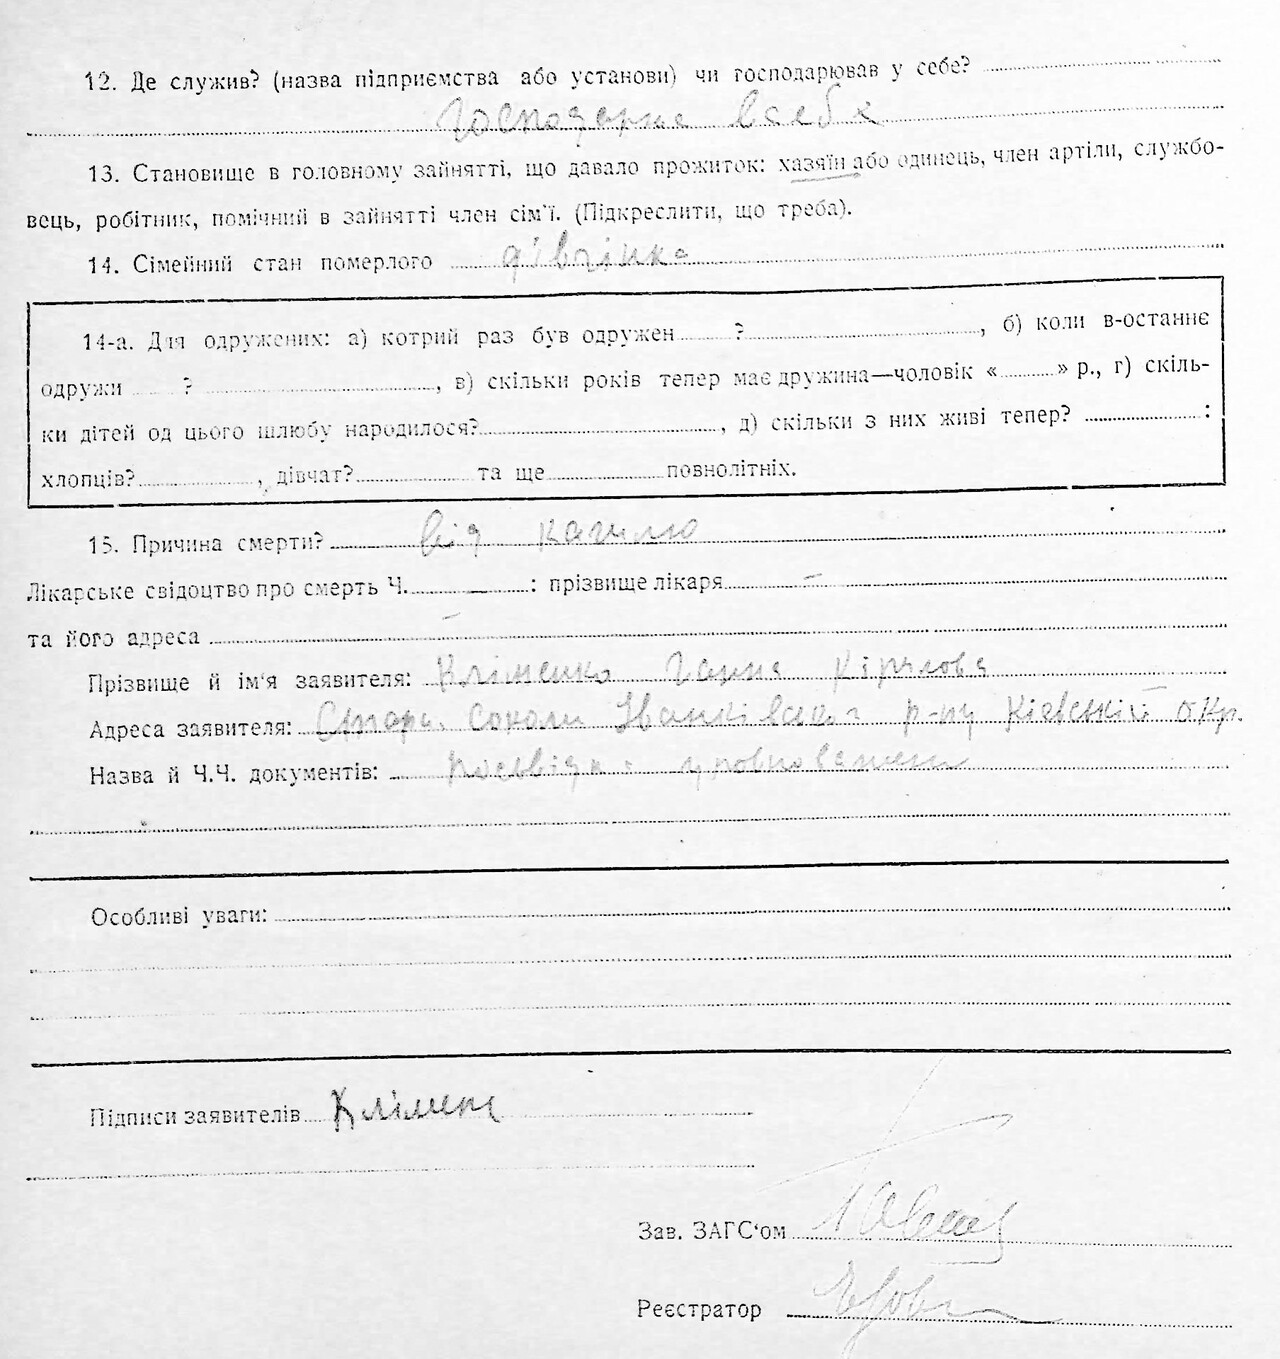 12. Де служив? (назва підприємства або установи) чи господарював у себе?
Господарює в себе
13. Становище в головному зайнятті, що давало прожиток: хазяїн або одинець, член артіли, службо-
вець, робітник, помічний в зайнятті член сім'ї. (Підкреслити, що треба).
14. Сімейний стан померлого дівчінка
14-а. Для одружених: а) котрий раз був одружен ? , б) коли в-останнє
одружи ? , в) скільки років тепер має дружина—чоловік « » р., г) скіль-
ки дітей од цього шлюбу народилося? , д) скільки з них живі тепер? :
хлопців? , дівчат? та ще повнолітніх.
15. Причина смерти? від кашлю
Лікарське свідоцтво про смерть Ч. — : прізвище лікаря —
та його адреса
Прізвище й ім'я заявителя: Кліменко Ганна Кірилова
Адреса заявителя: Стар. Соколи Іванківського р-ну Київський окр.
Назва й Ч.Ч. документів:
Особливі уваги:
Підписи заявителів Клімен
Зав. ЗАГС'ом
Реєстратор